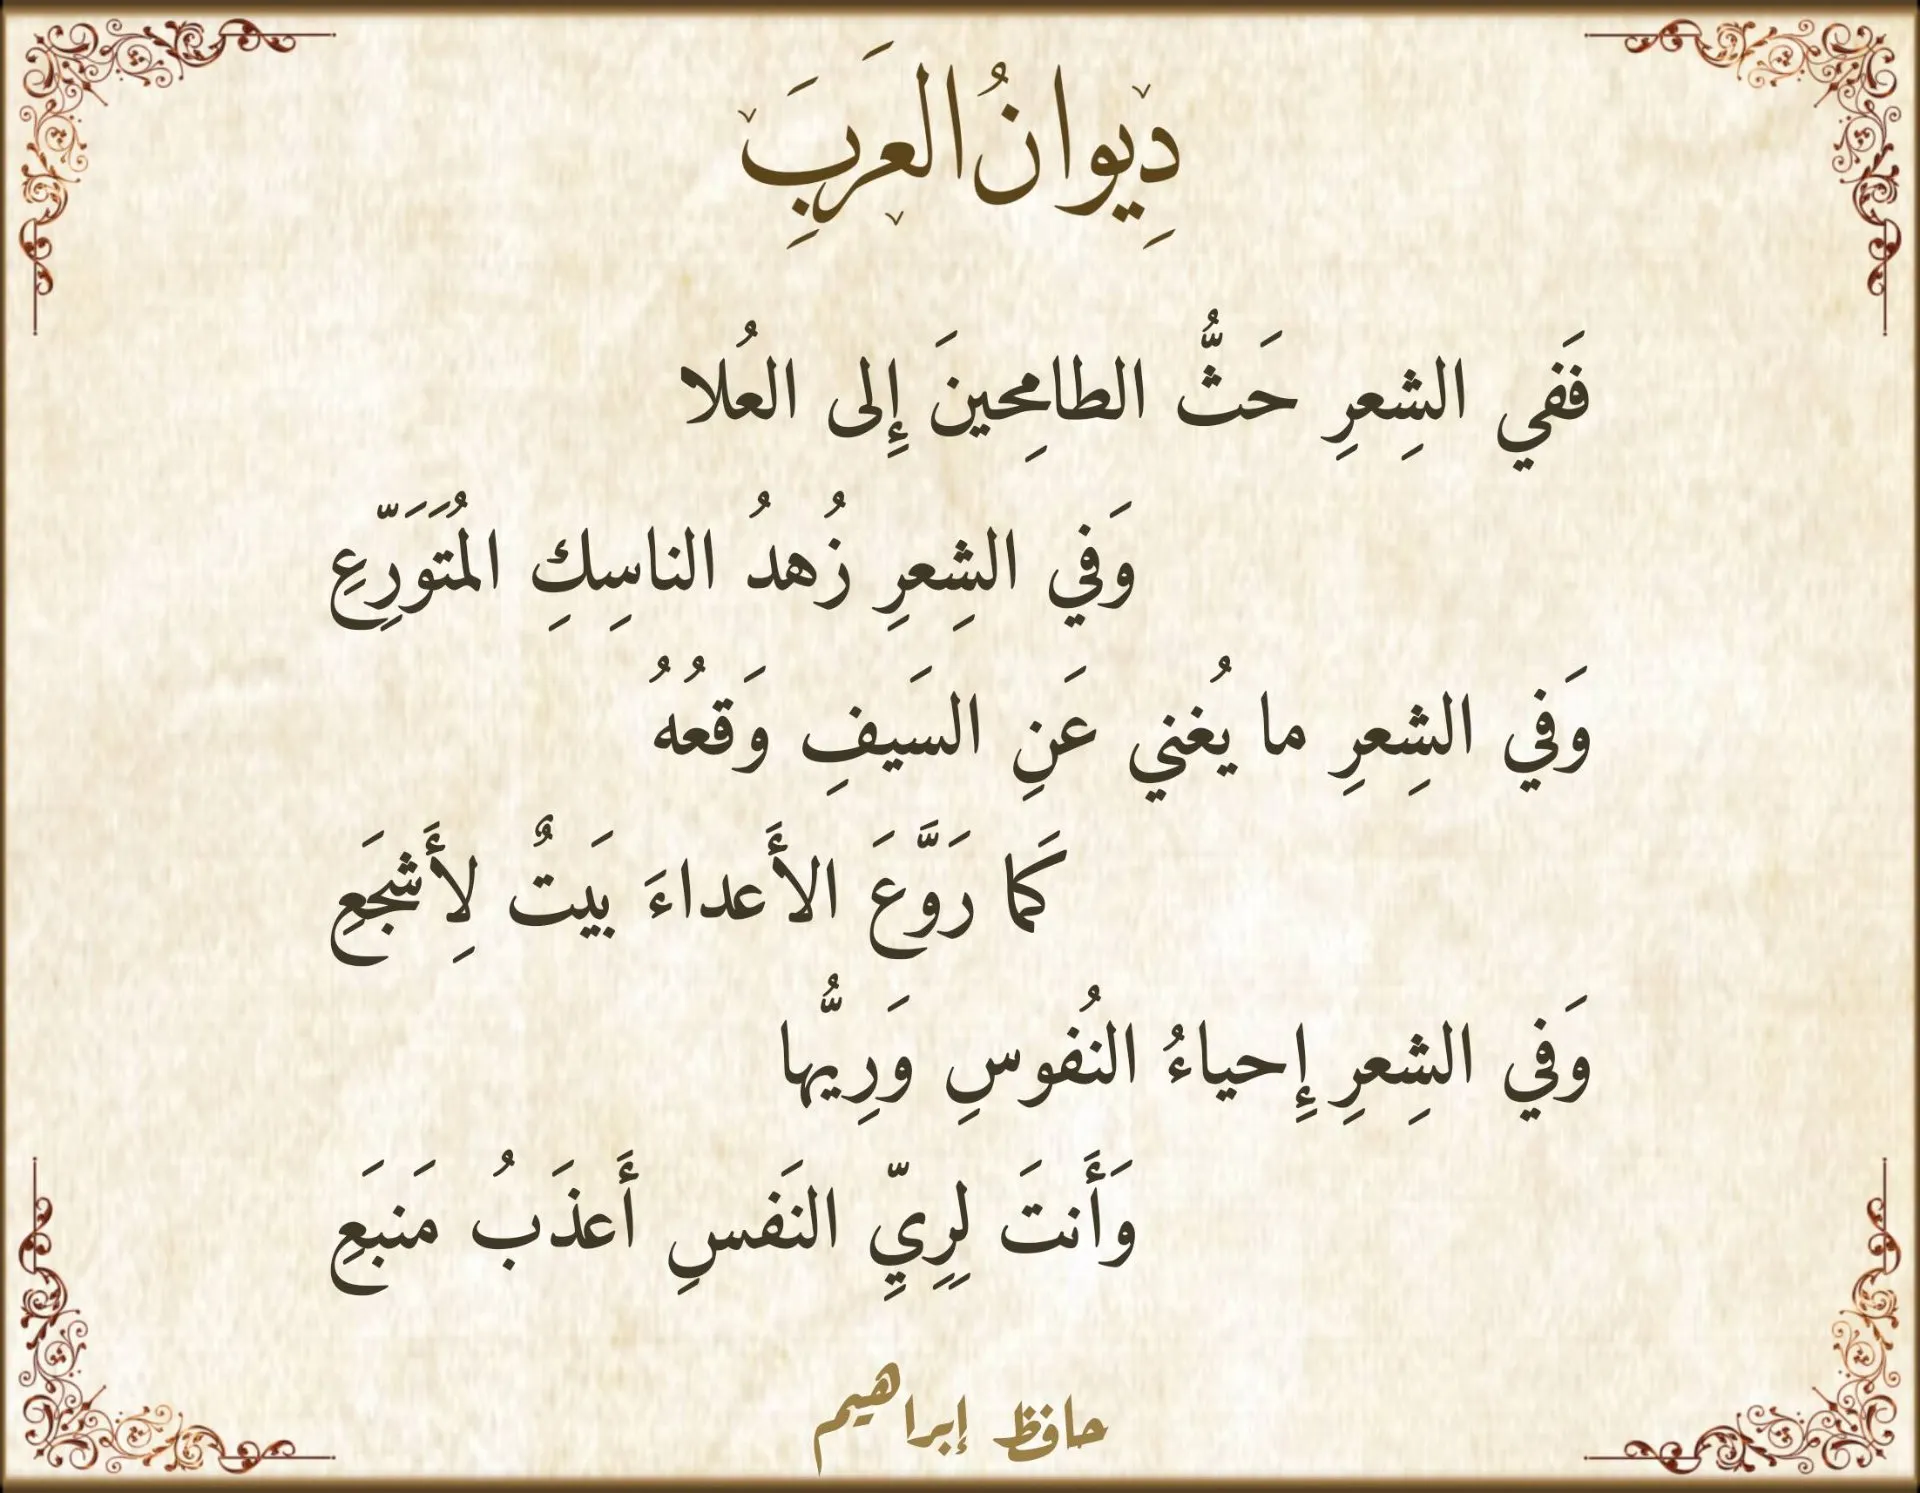 دِيوانُ العَرَبِ
فَفي الشِعرِ حَثُّ الطامِحينَ إِلى العُلا
وَفي الشِعرِ زُهدُ الناسِكِ المُتَوَرِّعِ
وَفي الشِعرِ ما يُغني عَنِ السَيفِ وَقعُهُ
كَما رَوَّعَ الأَعداءَ بَيتٌ لِأَشجَعِ
وَفي الشِعرِ إِحياءُ النُفوسِ وَرِيُّها
وَأَنتَ لِرِيِّ النَفسِ أَعذَبُ مَنبَعِ
حافظ إبراهيم